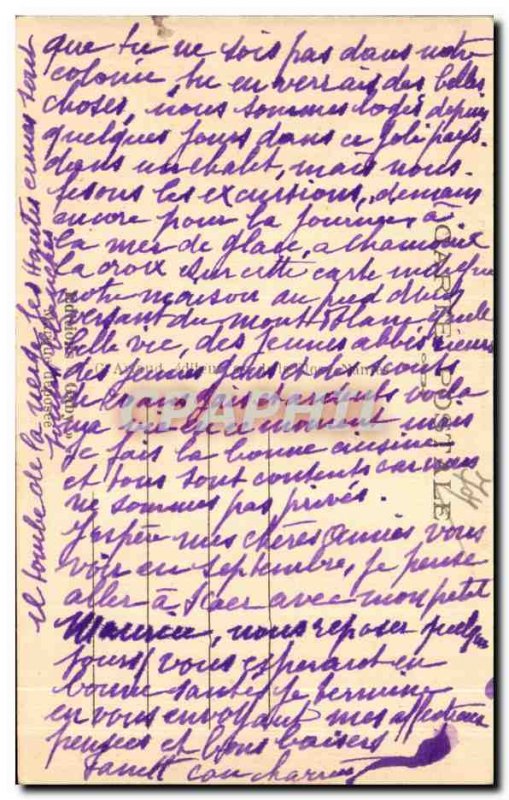 que tu ne sois pas dans notre
colonie, tu en verrais des belles
choses, nous sommes logés depuis
quelques jours dans ce joli pays.
dans un chalet, mais nous
faisons les excursions, demain
encore pour la journée à
la mer de glace, a Chamonix
la croix sur cette carte indique
notre maison au pied du
versant du mont Blanc quelle
belle vie des jeunes abbés
des jeunes et des scouts
voila
ma vie en ce moment mais
je fais la bonne cuisine
et tous sont contents car nous
ne sommes pas privés.
J'espère mes chères amies vous
voir en septembre, je pense
aller à Scaer avec mon petit
Maurice, nous reposer quelques
jours, vous esperant en
bonne santé je termine
en vous envoyant mes affectueuses
pensées et bons baisers
il tombe de la neige les hautes cimes sont
toutes blanches
CARTE POSTALE
CPAPHIL